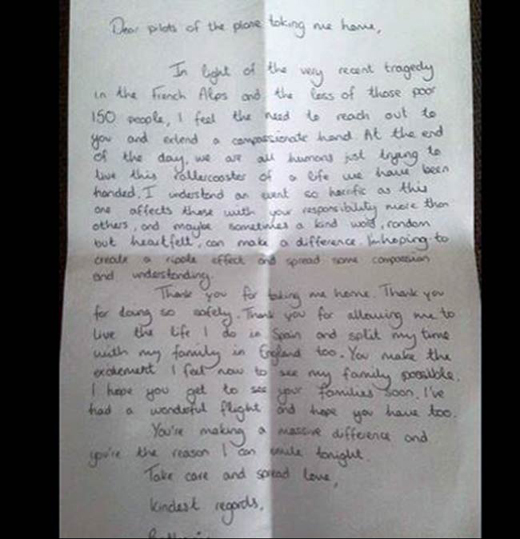 Dear pilots of the plane taking me home,
In light of the very recent tragedy
in the French Alps and the loss of those poor
150 people, I feel the need to reach out to
you and extend a compassionate hand. At the end
of the day, we are all humans just trying to
live this rollercoaster of a life we have been
handed. I understand an event so horrific as this
one affects those with your responsibility more than
others, and maybe sometimes a kind word, random
but heartfelt, can make a difference. I'm hoping to
create a ripple effect and spread some compassion
and understanding.
Thank you for taking me home. Thank you
for doing so safely. Thank you for allowing me to
live the life I do in Spain and split my time
with my family in England too. You make the
excitement I feel now to see my family possible.
I hope you get to see your families soon. I've
had a wonderful flight and hope you have too.
You're making a massive difference and
you're the reason I can smile tonight.
Take care and spread love,
kindest regards,